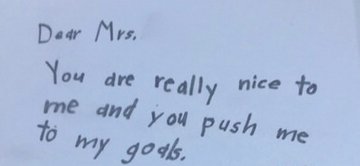 Dear Mrs.
You are really nice to
me and you push me
to my goals.